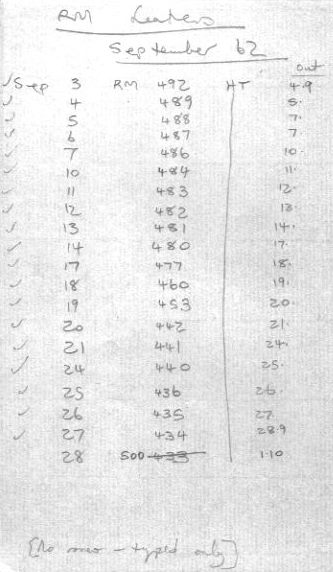 RM Leaders
September 62
out
✓ Sep 3 RM 492 HT 4.9
✓ 4 489 5.
✓ 5 488 7.
✓ 6 487 7
✓ 7 486 10.
✓ 10 484 11.
✓ 11 483 12.
✓ 12 482 13.
✓ 13 481 14.
✓ 14 480 17.
✓ 17 477 18.
✓ 18 460 19.
✓ 19 453 20.
✓ 20 442 21.
✓ 21 441 24.
✓ 24 440 25.
✓ 25 436 26.
✓ 26 435 27.
✓ 27 434 28.9
28 500 433 1.10
[No – typed only]